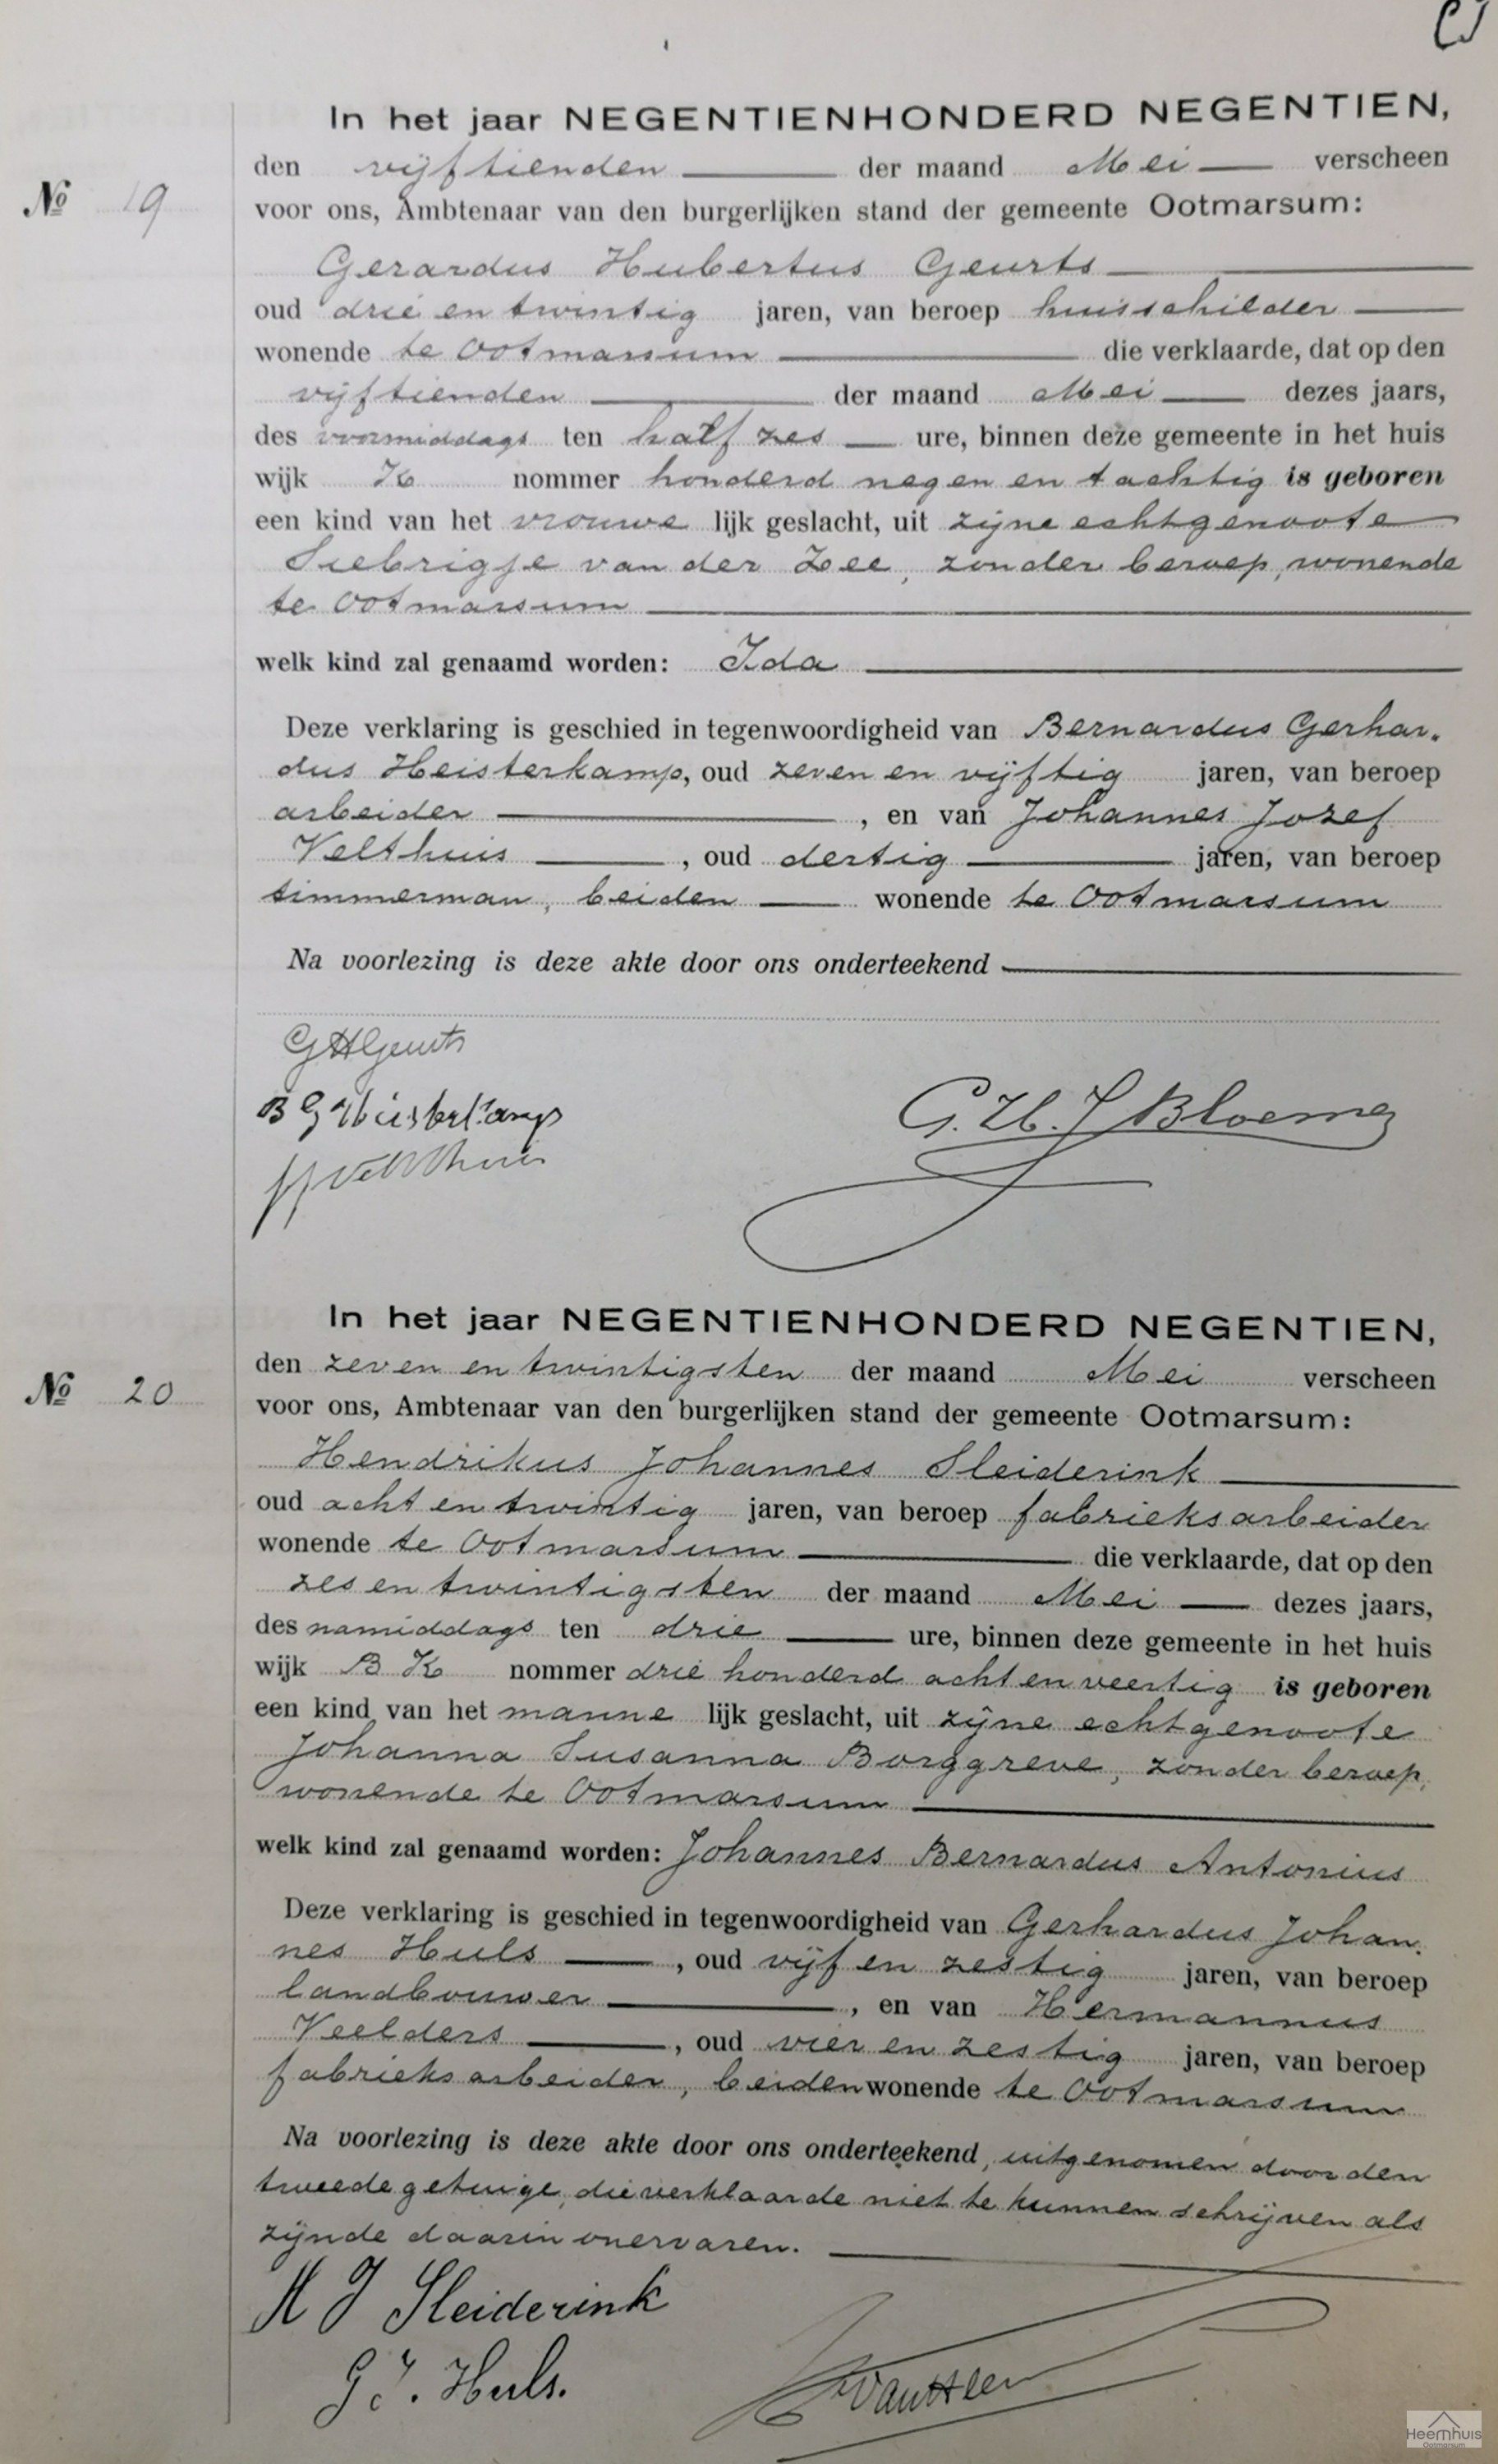 In het jaar NEGENTIENHONDERD NEGENTIEN,
den vijftienden der maand Mei verscheen
No 19
voor ons, Ambtenaar van den burgerlijken stand der gemeente Ootmarsum:
Gerardus Hubertus Geurts
oud drie en twintig jaren, van beroep huisschilder
wonende te Ootmarsum die verklaarde, dat op den
vijftienden der maand Mei dezes jaars,
des voormiddags ten half zes ure, binnen deze gemeente in het huis
wijk K nommer honderd negen en tachtig is geboren
een kind van het vrouwe lijk geslacht, uit zijne echtgenoote
Siebrigje van der Zee, zonder beroep, wonende
te Ootmarsum
welk kind zal genaamd worden: Ida
Deze verklaring is geschied in tegenwoordigheid van Bernardus Gerhar-
dus Heisterkamp, oud zeven en vijftig jaren, van beroep
arbeider, en van Johannes Jozef
Velthuis, oud dertig jaren, van beroep
timmerman, beiden wonende te Ootmarsum
Na voorlezing is deze akte door ons onderteekend
GHGeurts
B G Heisterkamp
JJVelthuis
G. H. J Bloemen
In het jaar NEGENTIENHONDERD NEGENTIEN,
den zeven en twintigsten der maand Mei verscheen
No 20
voor ons, Ambtenaar van den burgerlijken stand der gemeente Ootmarsum:
Hendrikus Johannes Sleiderink
oud acht en twintig jaren, van beroep fabrieksarbeider
wonende te Ootmarsum die verklaarde, dat op den
zes en twintigsten der maand Mei dezes jaars,
des namiddags ten drie ure, binnen deze gemeente in het huis
wijk B K nommer drie honderd acht en veertig is geboren
een kind van het manne lijk geslacht, uit zijne echtgenoote
Johanna Susanna Borggreve, zonder beroep,
wonende te Ootmarsum
welk kind zal genaamd worden: Johannes Bernardus Antonius
Deze verklaring is geschied in tegenwoordigheid van Gerhardus Johan-
nes Huls, oud vijf en zestig jaren, van beroep
landbouwer, en van Hermannus
Veelders, oud vier en zestig jaren, van beroep
fabrieksarbeider, beiden wonende te Ootmarsum
Na voorlezing is deze akte door ons onderteekend, uitgenomen door den
tweede getuige, die verklaarde niet te kunnen schrijven als
zijnde daarin onervaren.
H J Sleiderink
G J. Huls.
Heemhuis
Ootmarsum